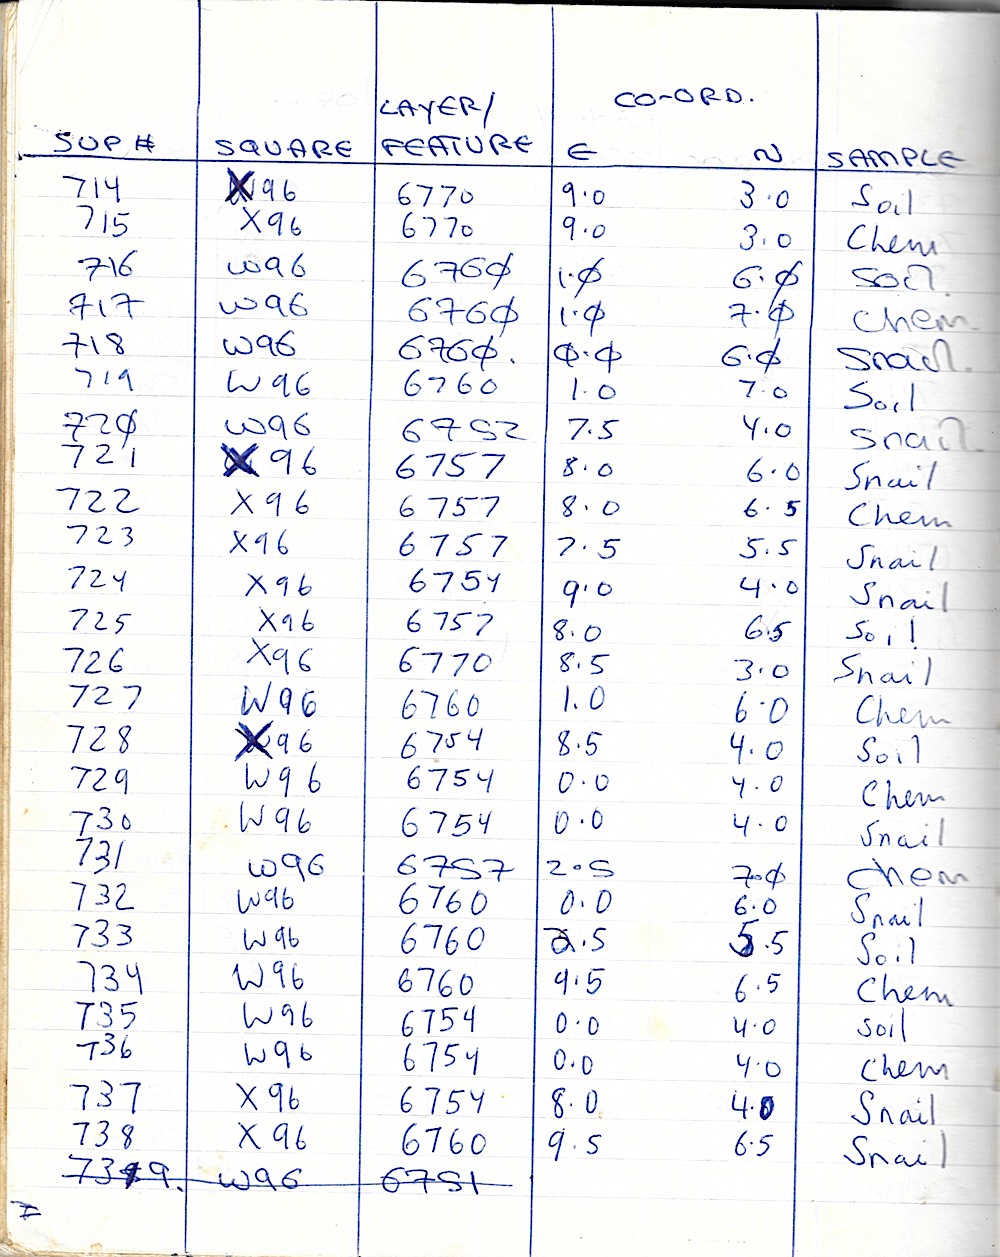 LAYER/ CO-ORD.
SUP# SQUARE FEATURE E N SAMPLE
714 X96 6770 9.0 3.0 Soil
715 X96 6770 9.0 3.0 Chem
716 W96 676Ø 1.Ø 6.Ø Soil.
717 W96 676Ø 1.Ø 7.Ø Chem.
718 W96 676Ø. Ø.Ø 6.Ø Snail.
719 W96 6760 1.0 7.0 Soil
72Ø W96 6752 7.5 4.0 Snail.
721 X96 6757 8.0 6.0 Snail
722 X96 6757 8.0 6.5 Chem
723 X96 6757 7.5 5.5 Snail
724 X96 6754 9.0 4.0 Snail
725 X96 6757 8.0 6.5 Soil
726 X96 6770 8.5 3.0 Snail
727 W96 6760 1.0 6.0 Chem
728 X96 6754 8.5 4.0 Soil
729 W96 6754 0.0 4.0 Chem
730 W96 6754 0.0 4.0 Snail
731 W96 6757 2.5 7.Ø Chem
732 W96 6760 0.0 6.0 Snail
733 W96 6760 2.5 5.5 Soil
734 W96 6760 9.5 6.5 Chem
735 W96 6754 0.0 4.0 Soil
736 W96 6754 0.0 4.0 Chem
737 X96 6754 8.0 4.0 Snail
738 X96 6760 9.5 6.5 Snail
739. W96 6751